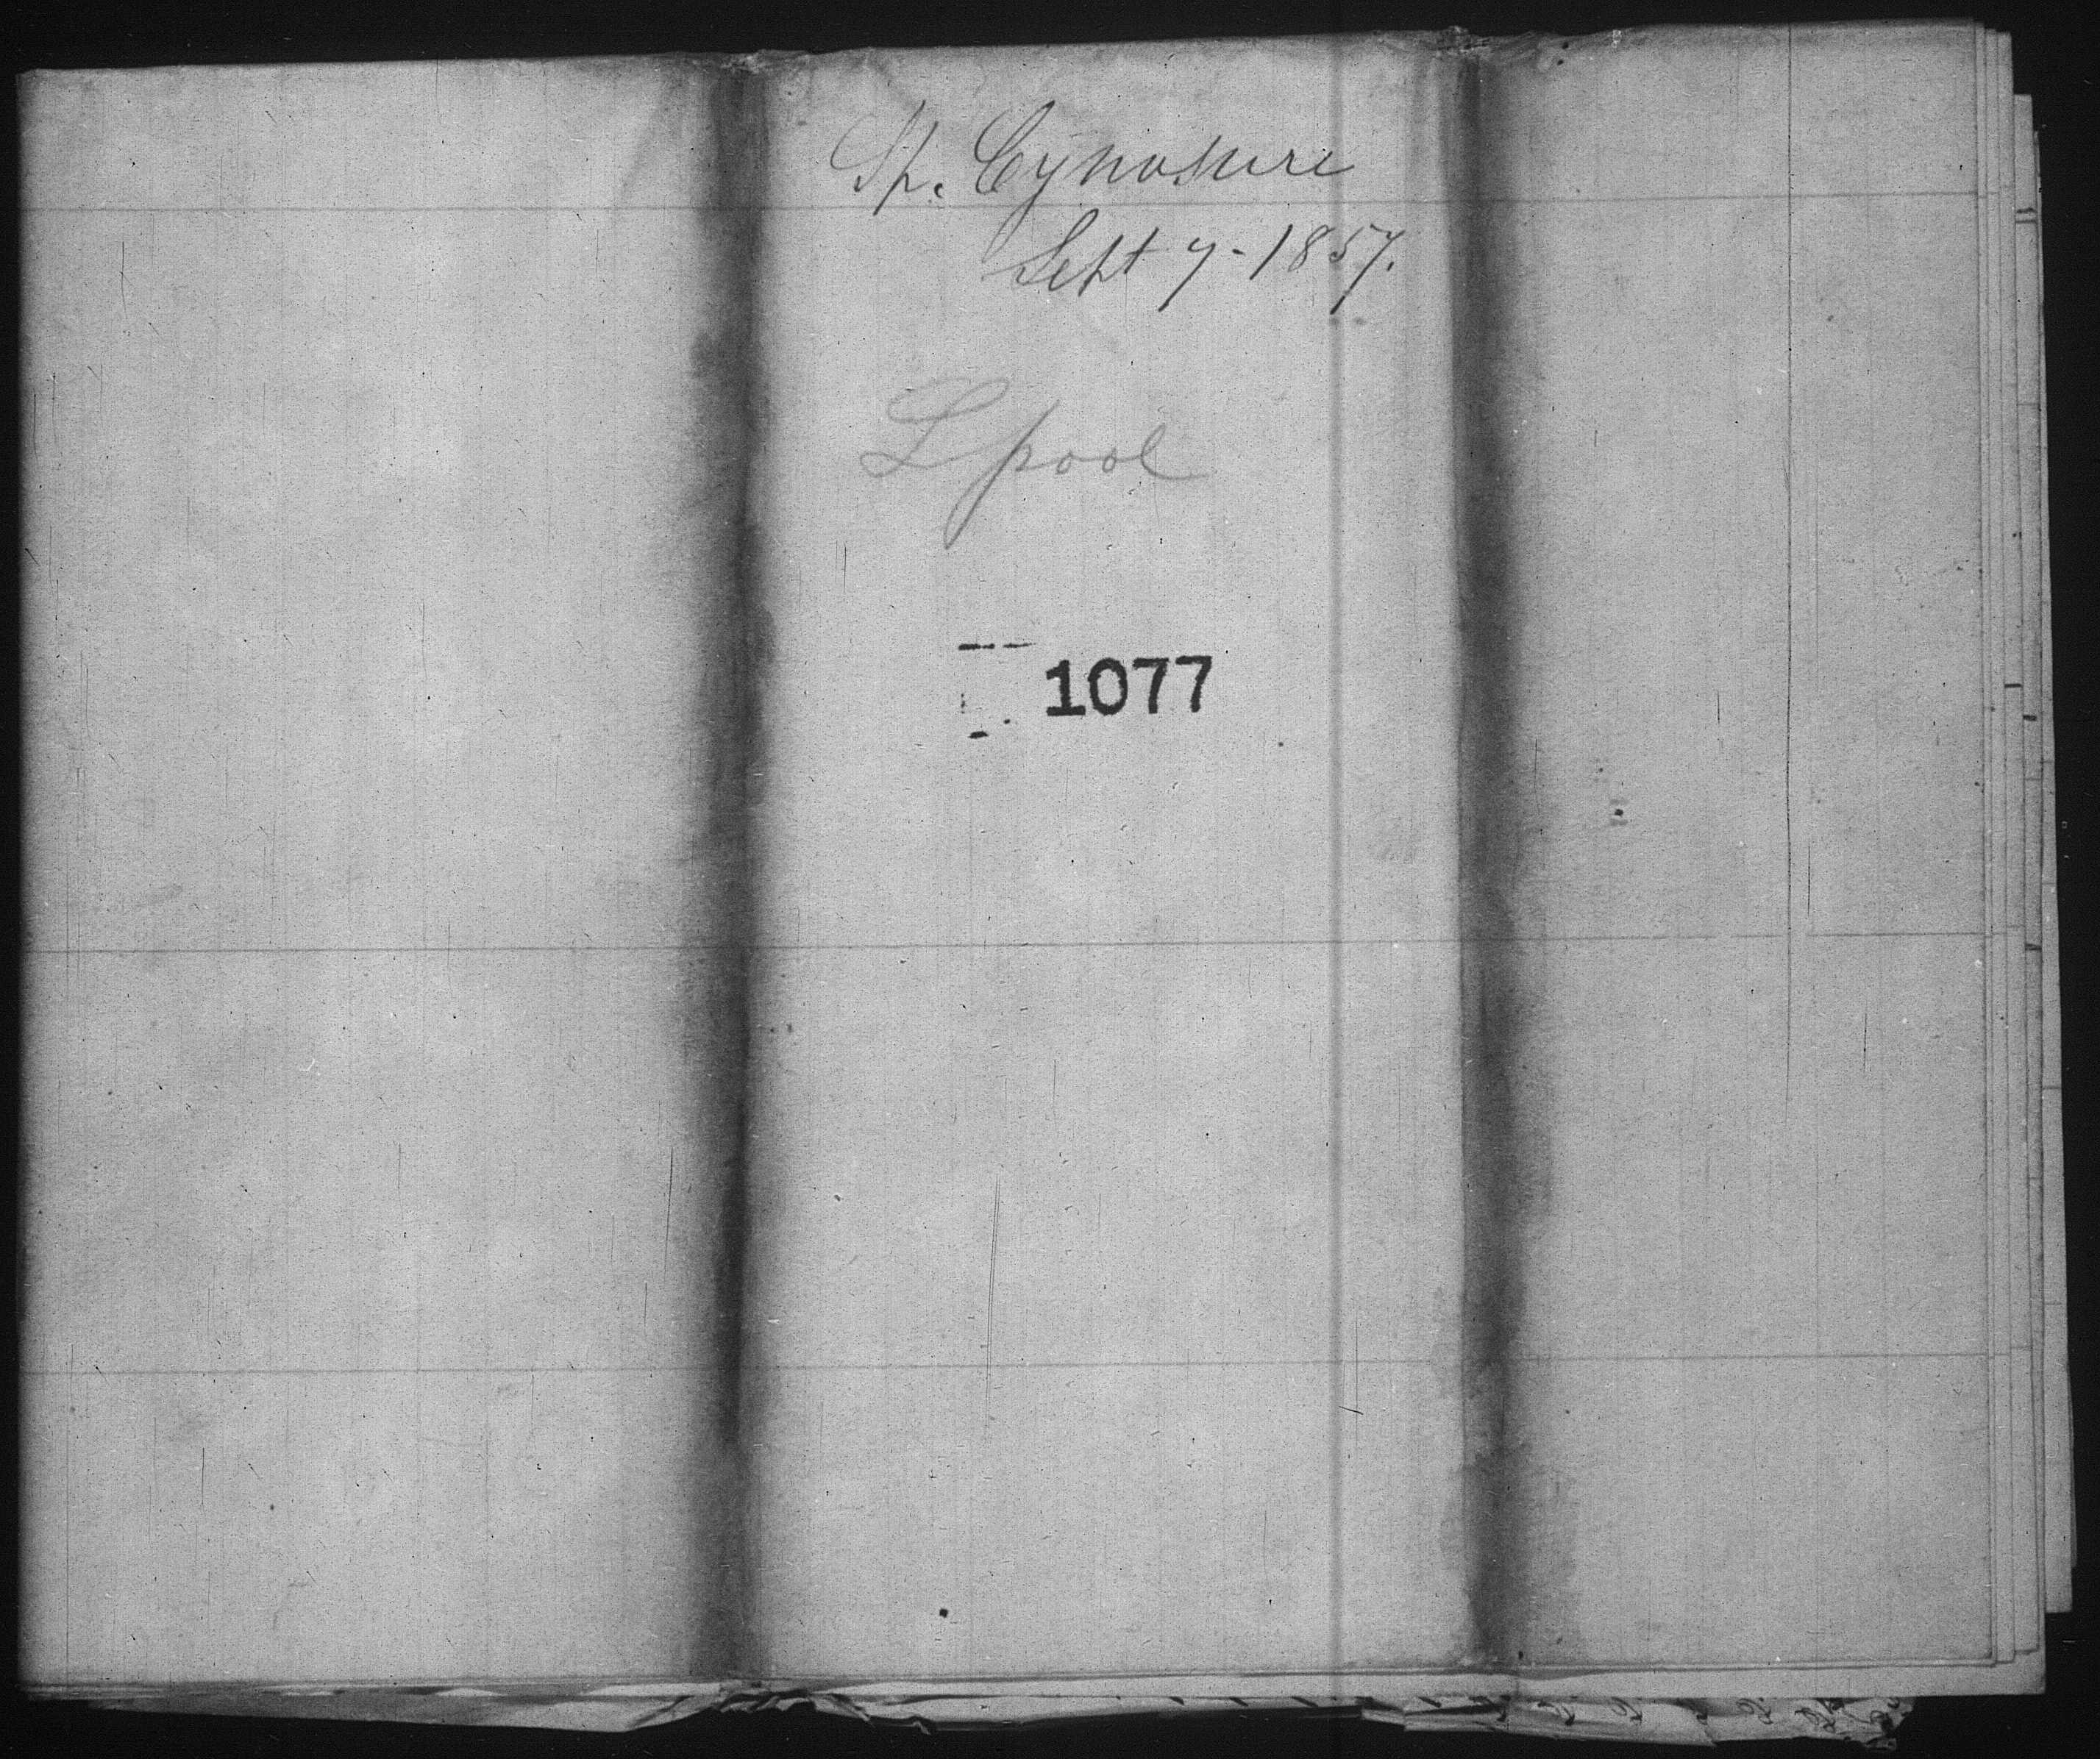 Sh. Cynosure
Sept 7-1857.
L pool
1077